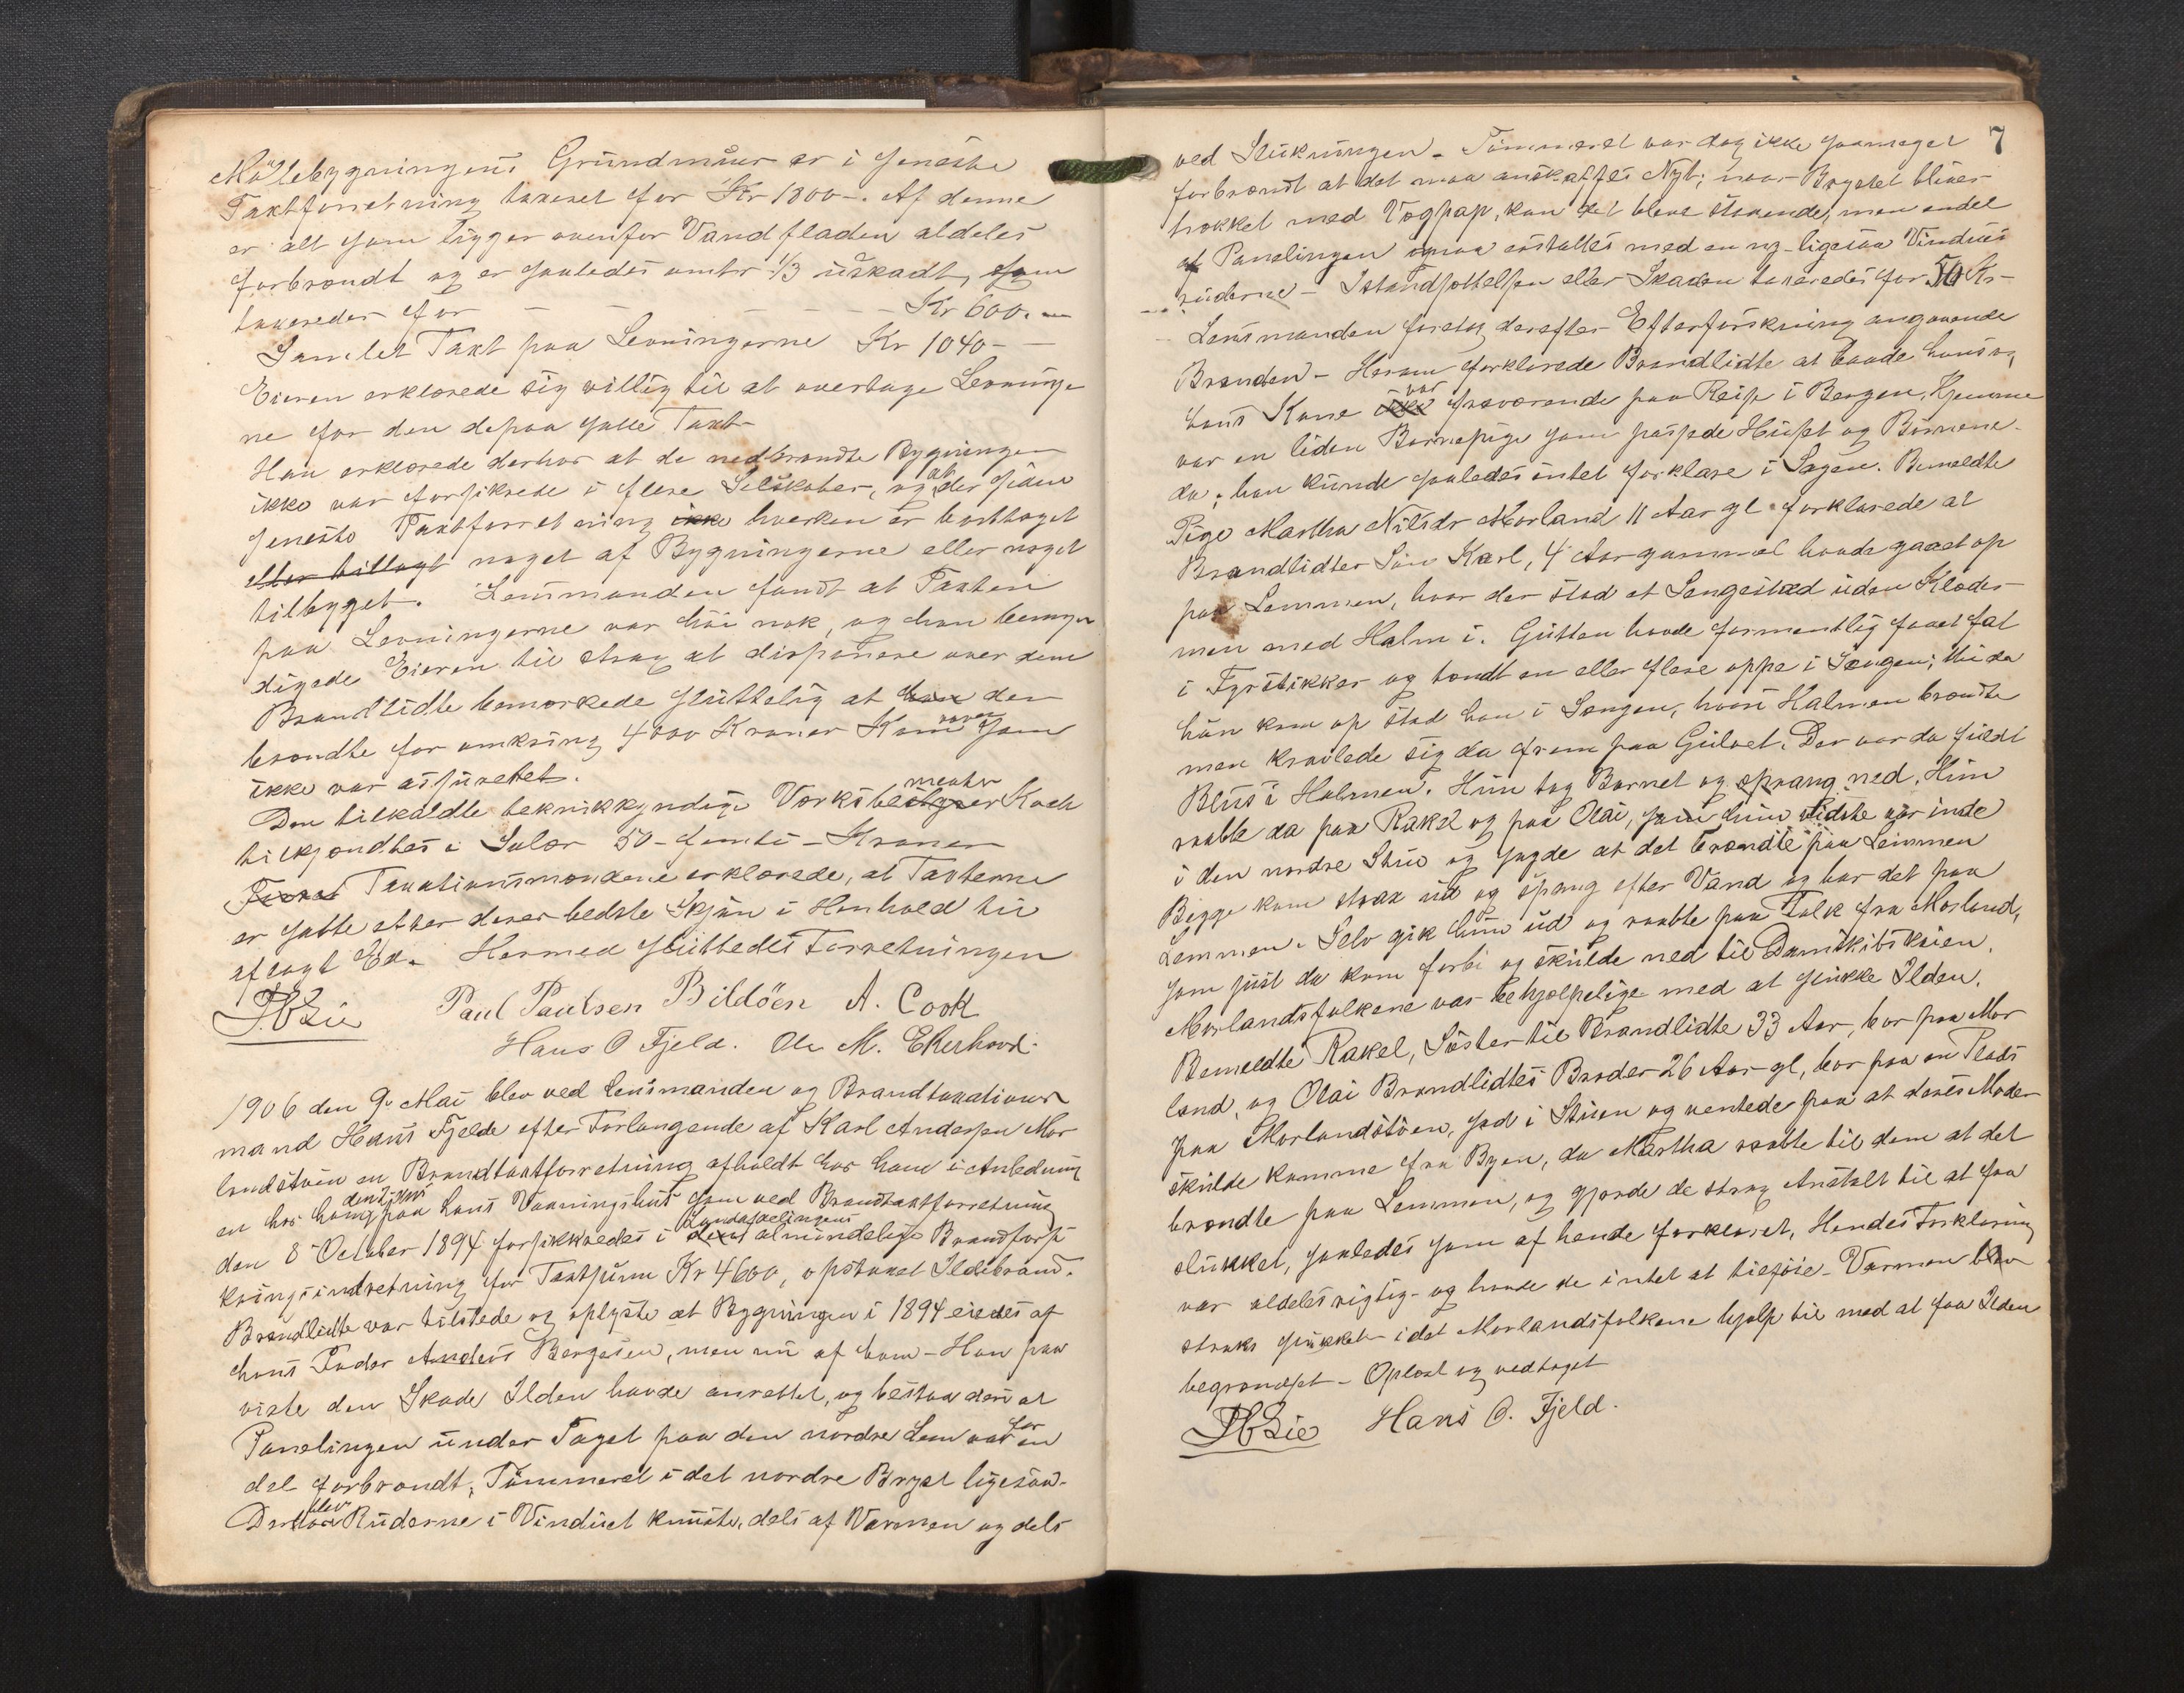 Möllebygningens Grundmuur er i seneste
Taxtforretning taxeret for Kr 1800-. Af denne
er alt som ligger ovenfor Vandfladen aldeles
forbrændt og er saaledes omtr 1/3 uskadt, som
taxeredes for - - - - - Kr 600.-
Samlet Taxt paa Levningerne Kr 1040- -
Eieren erklærede sig villig til at overtage Levninge
ne for den depaa satte Taxt-
Han erklærede derhos at de nedbrændte Bygninger
ikke var forsikrede i flere Selskaber, og at der siden
seneste Taxtforretning ikke hverken er borttaget
eller tillagt noget af Bygningerne eller noget
tilbygget. Lensmanden fandt at Taxten
paa Levningerne var höi nok, og han bemyn
digede Eieren til strax at disponere over dem
Brandlidte bemærkede sluttelig at han der
brændte for omkring 4000 Kroner Kornvarer som
ikke var assureret.
Den tilkaldte teknikkyndige Værksbestyrer mester Koch
tilkjendtes i Salær 50- femti - Kroner
Taxationsmændene erklærede, at Taxterne
er satte efter deres bedste Skjön i Henhold til
aflagt Ed. Hermed sluttedes Forretningen
Paul Paulsen Bildöen A. Cook
Hans O Fjeld. Ole M. Ekerhovd.
1906 den 9. Mai blev ved Lensmanden og Brandtaxations
mand Hans Fjelde efter Forlangende af Karl Andersen Mor
landstöen en Brandtaxtforretning afholdt hos ham i Anledning
en hos ham paa hans Vaaningshus som ved Brandtaxtforretning
den 8 October 1894 forsikkredes i den Landafdelingens almindelige Brandforsi
kringsindretning for Taxtsum Kr 4600, opstaaet Ildebrand.
Brandlidte var tilstede og oplyste at Bygningen i 1894 eiedes af
hans Fader Anders Bergesen, men nu af ham - Han paa
viste den Skade Ilden havde anrettet, og bestaar den at
Panelingen under Taget paa den nordre Lem var for en
del forbrændt; Tömmeret i det nordre Bryst ligesaa.
Der blev Ruderne i Vinduet knuste, dels af Varmen og dels
7
ved Slukningen - Tömmeret var dog ikke saameget
forbrændt at det maa anskaffes Nyt; naar Brystet bliver
trækket med Vægpap, kan det blive staaende, men endel
af Panelingen maa erstattes med en ny - ligesaa Vindues
ruderne - Istandsættelsen eller Skaden taxeredes for 50 Kr-
Lensmanden foretog derefter Efterforskning angaaende
Branden - Herom forklarede Brandlidte at baade hans og
hans Kone ikke var fraværende paa Reise i Bergen. Hjemme
var en liden Barnepige som passede Huset og Börnene
da, han kunde saaledes intet forklare i Sagen. Bemeldte
Pige Martha Nilsdr Morland 11 Aar gl. forklarede at
Brandlidtes Sön Karl, 4 Aar gammel havde gaaet op
paa Lemmen, hvor der stod et Sengested uden Klæder
men med Halm i. Gutten havde formentlig faaet fat
i Fyrstikker og tændt en eller flere oppe i Sengen; thi da
hun kom op stod han i Sengen, hvori Halmen brændte
men kravlede sig da frem paa Gulvet. Der var da fuldt
Blus i Halmen. Hun tog Barnet og sprang ned. Hun
raabte da paa Rakel og paa Olai, som hun vidste var inde
i den nordre Stue og sagde at det brændte paa Lemmen
Begge kom strax ud og sprang efter Vand og bar det paa
Lemmen. Selv gik hun ud og raabte paa Folk fra Morland,
som just da kom forbi og skulde ned til Damskibskaien.
Morlandsfolkene var behjælpelige med at slukke Ilden.
Bemeldte Rakel, Söster til Brandlidte 33 Aar, bor paa Mor
land, og Olai Brandlidtes Broder 26 Aar gl, bor paa en Plads
paa Morlandstöen, sad i Stuen og ventede paa at deres Moder
skulde komme fra Byen, da Martha raabte til dem at det
brændte paa Lemmen, og gjorde de strax Anstalt til at faa
slukket, saaledes som af hende forklaret, Hendes Forklaring
var aldeles rigtig - og havde de intet at tilföie - Varmen blev
straks slukket idet Morlandsfolkene hjalp til med at faa Ilden
begrændset - Oplæst og vedtaget
Hans O. Fjeld.